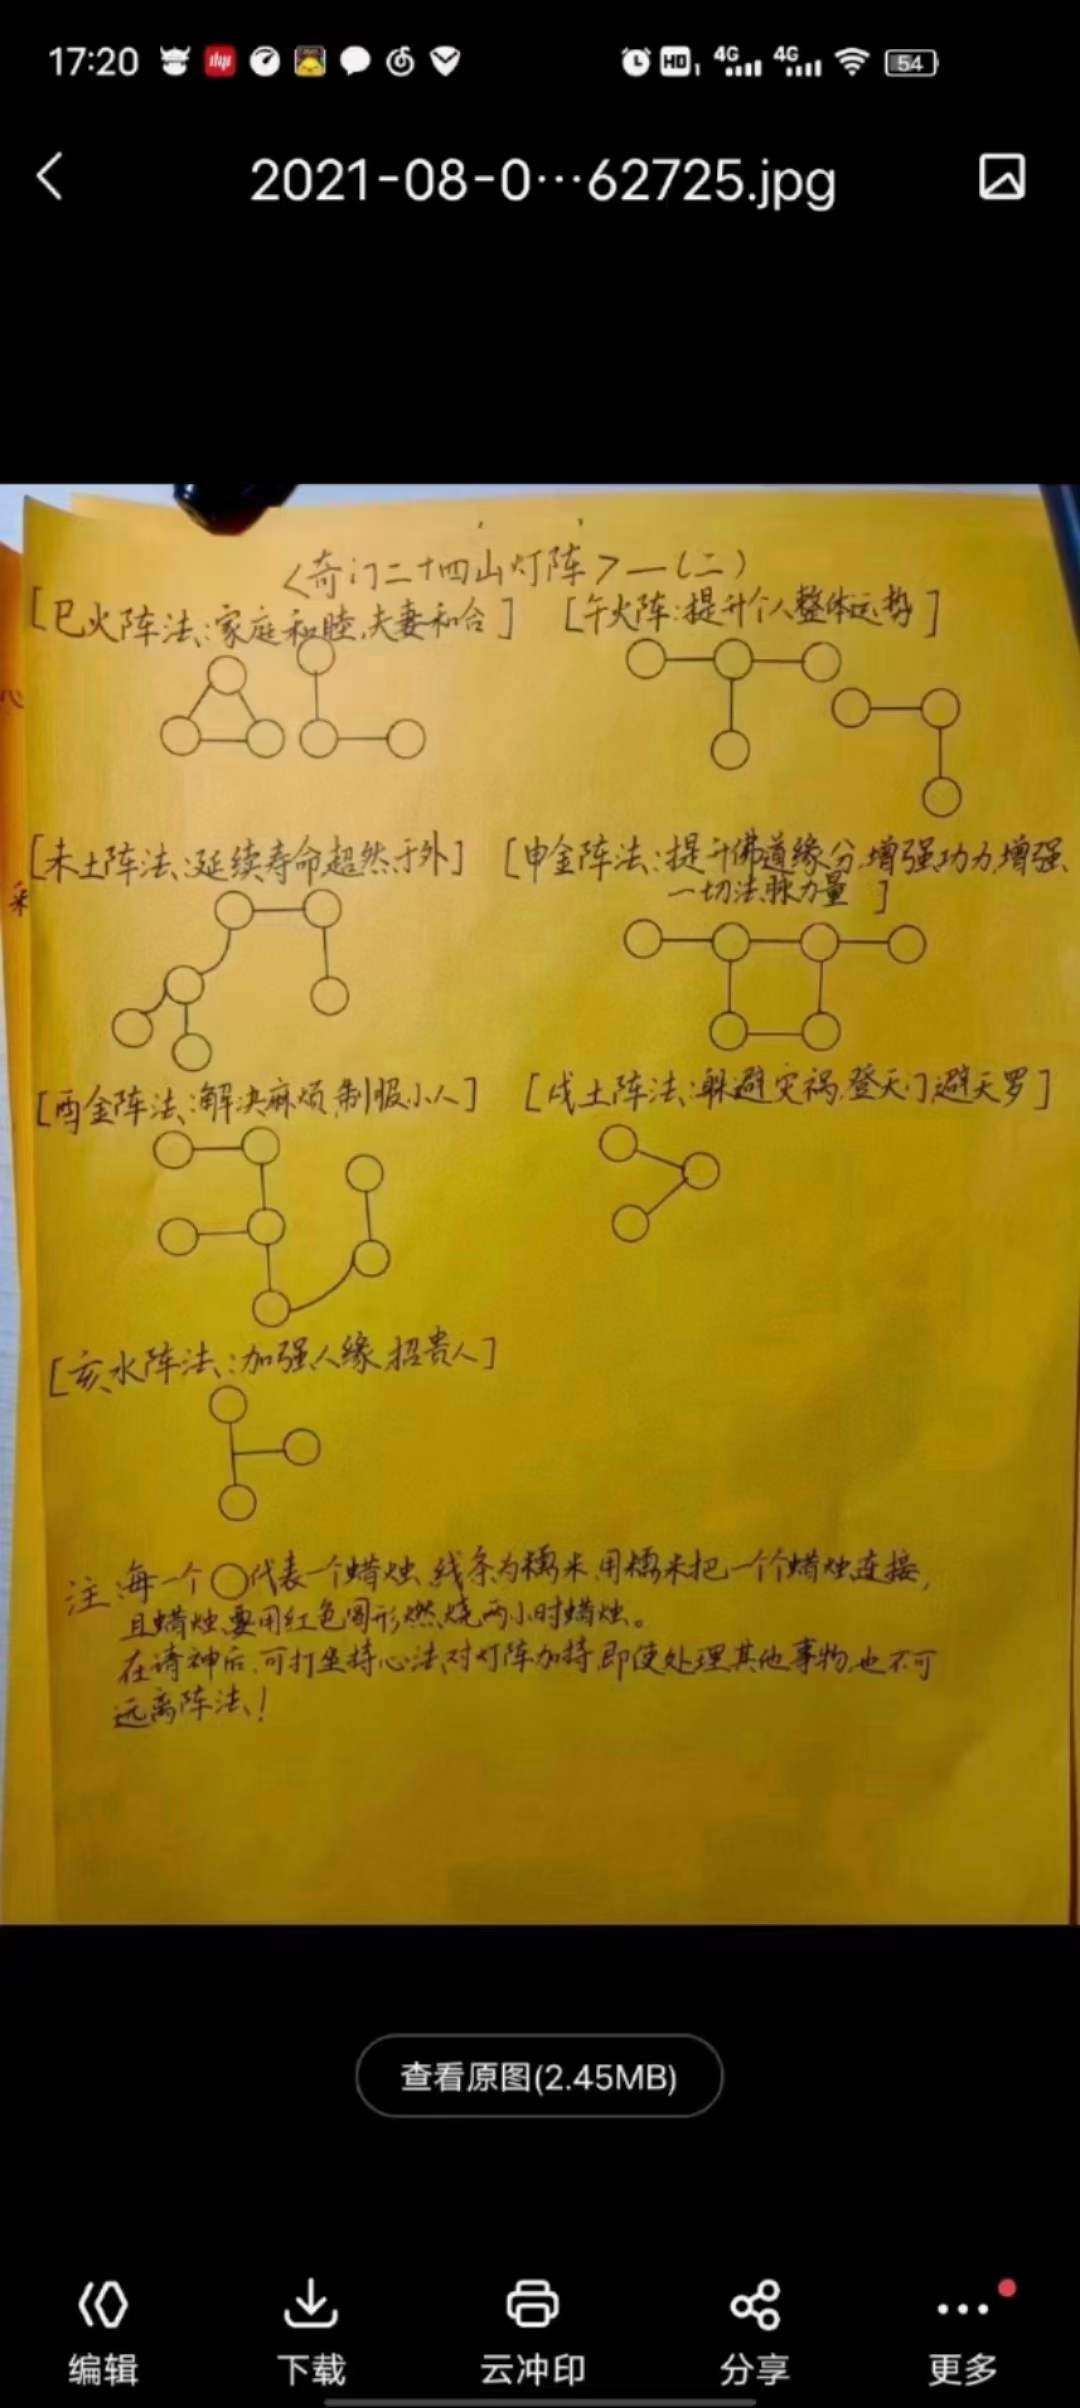 17:20
HD 1 4G 4G 54
2021-08-0…62725.jpg
<奇门二十四山灯阵>—(二)
[巳火阵法:家庭和睦,夫妻和合] [午火阵:提升个人整体运势]
[未土阵法:延续寿命超然于外] [申金阵法:提升佛道缘分,增强功力,增强
一切法脉力量]
[酉金阵法:解决麻烦,制服小人] [戌土阵法:躲避灾祸,登天门,避天罗]
[亥水阵法:加强人缘,招贵人]
注:每一个○代表一个蜡烛,线条为糯米,用糯米把一个个蜡烛连接,
且蜡烛要用红色圆形燃烧两小时蜡烛。
在请神后,可打坐持心法对灯阵加持,即使处理其他事物,也不可
远离阵法!
查看原图(2.45MB)
编辑 下载 云冲印 分享 更多